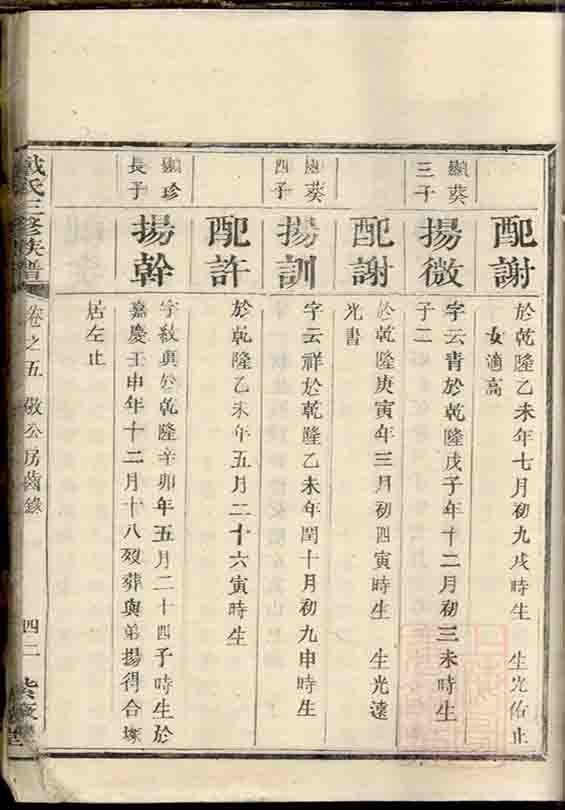 配謝
於乾隆乙未年七月初九戌時生 生光佑止
女適高
顯葵
三子
揚微
字云青於乾隆戊子年十二月初三未時生
子二
配謝
於乾隆庚寅年三月初四寅時生 生光遠
光書
顯葵
四子
揚訓
字云祥於乾隆乙未年閏十月初九申時生
配許
於乾隆乙未年五月二十六寅時生
顯珍
長子
揚幹
字敘典於乾隆辛卯年五月二十四子時生於
嘉慶壬申年十二月十八歿葬與弟揚得合塚
居左止
戴氏三修族譜
卷之五 敬公房齒錄
四二